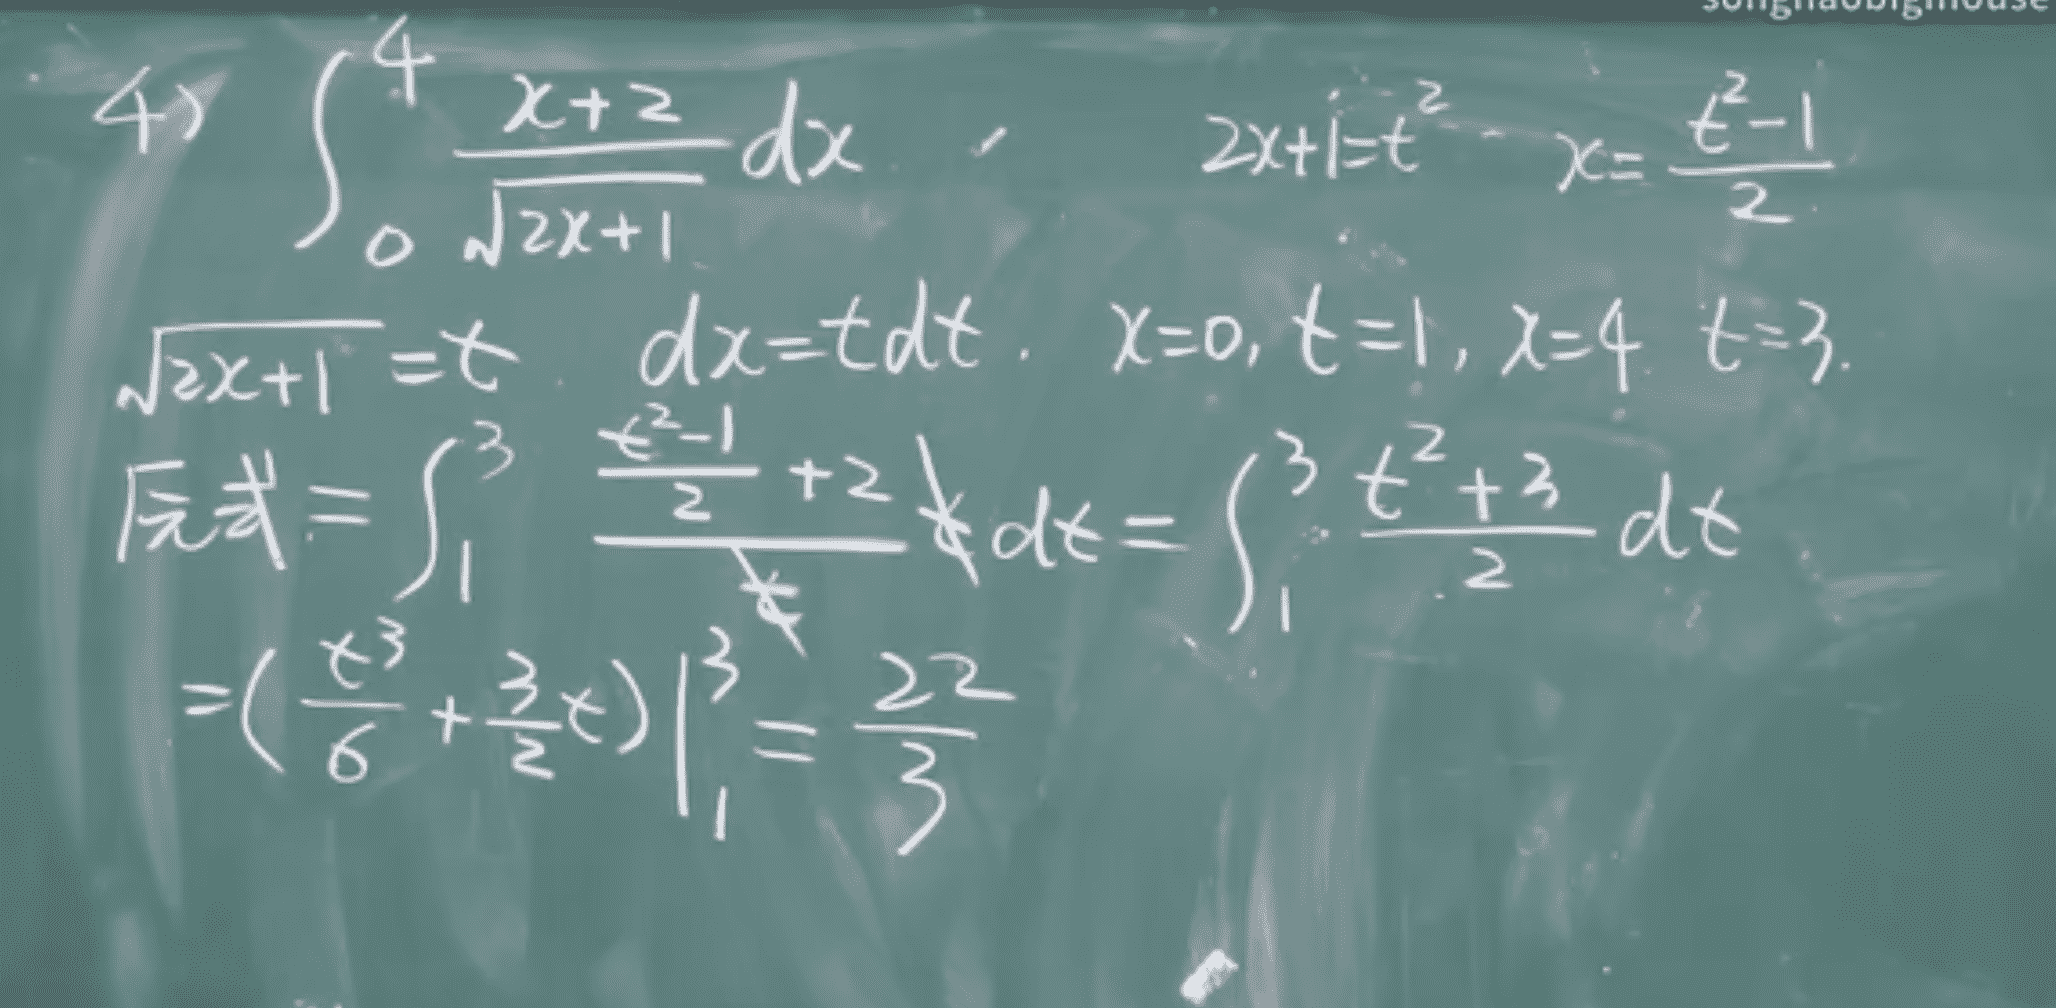 4) ∫₀⁴ (x+2)/√(2x+1) dx 2x+1=t² x=(t²-1)/2
√(2x+1) =t dx=tdt. x=0, t=1, x=4 t=3.
原式=∫₁³ ((t²-1)/2 +2)/t t dt=∫₁³ (t²+3)/2 dt
=(t³/6+3/2t)|₁³=22/3